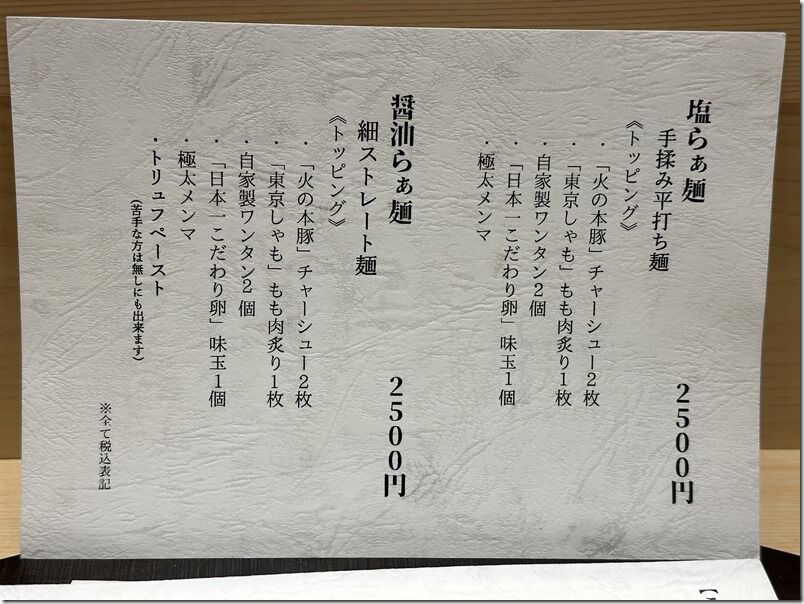 塩らぁ麺 2500円
手揉み平打ち麺
《トッピング》
・「火の本豚」チャーシュー2枚
・「東京しゃも」もも肉炙り1枚
・自家製ワンタン2個
・「日本一こだわり卵」味玉1個
・極太メンマ
醤油らぁ麺 2500円
細ストレート麺
《トッピング》
・「火の本豚」チャーシュー2枚
・「東京しゃも」もも肉炙り1枚
・自家製ワンタン2個
・「日本一こだわり卵」味玉1個
・極太メンマ
・トリュフペースト
(苦手な方は無しにも出来ます)
※全て税込表記